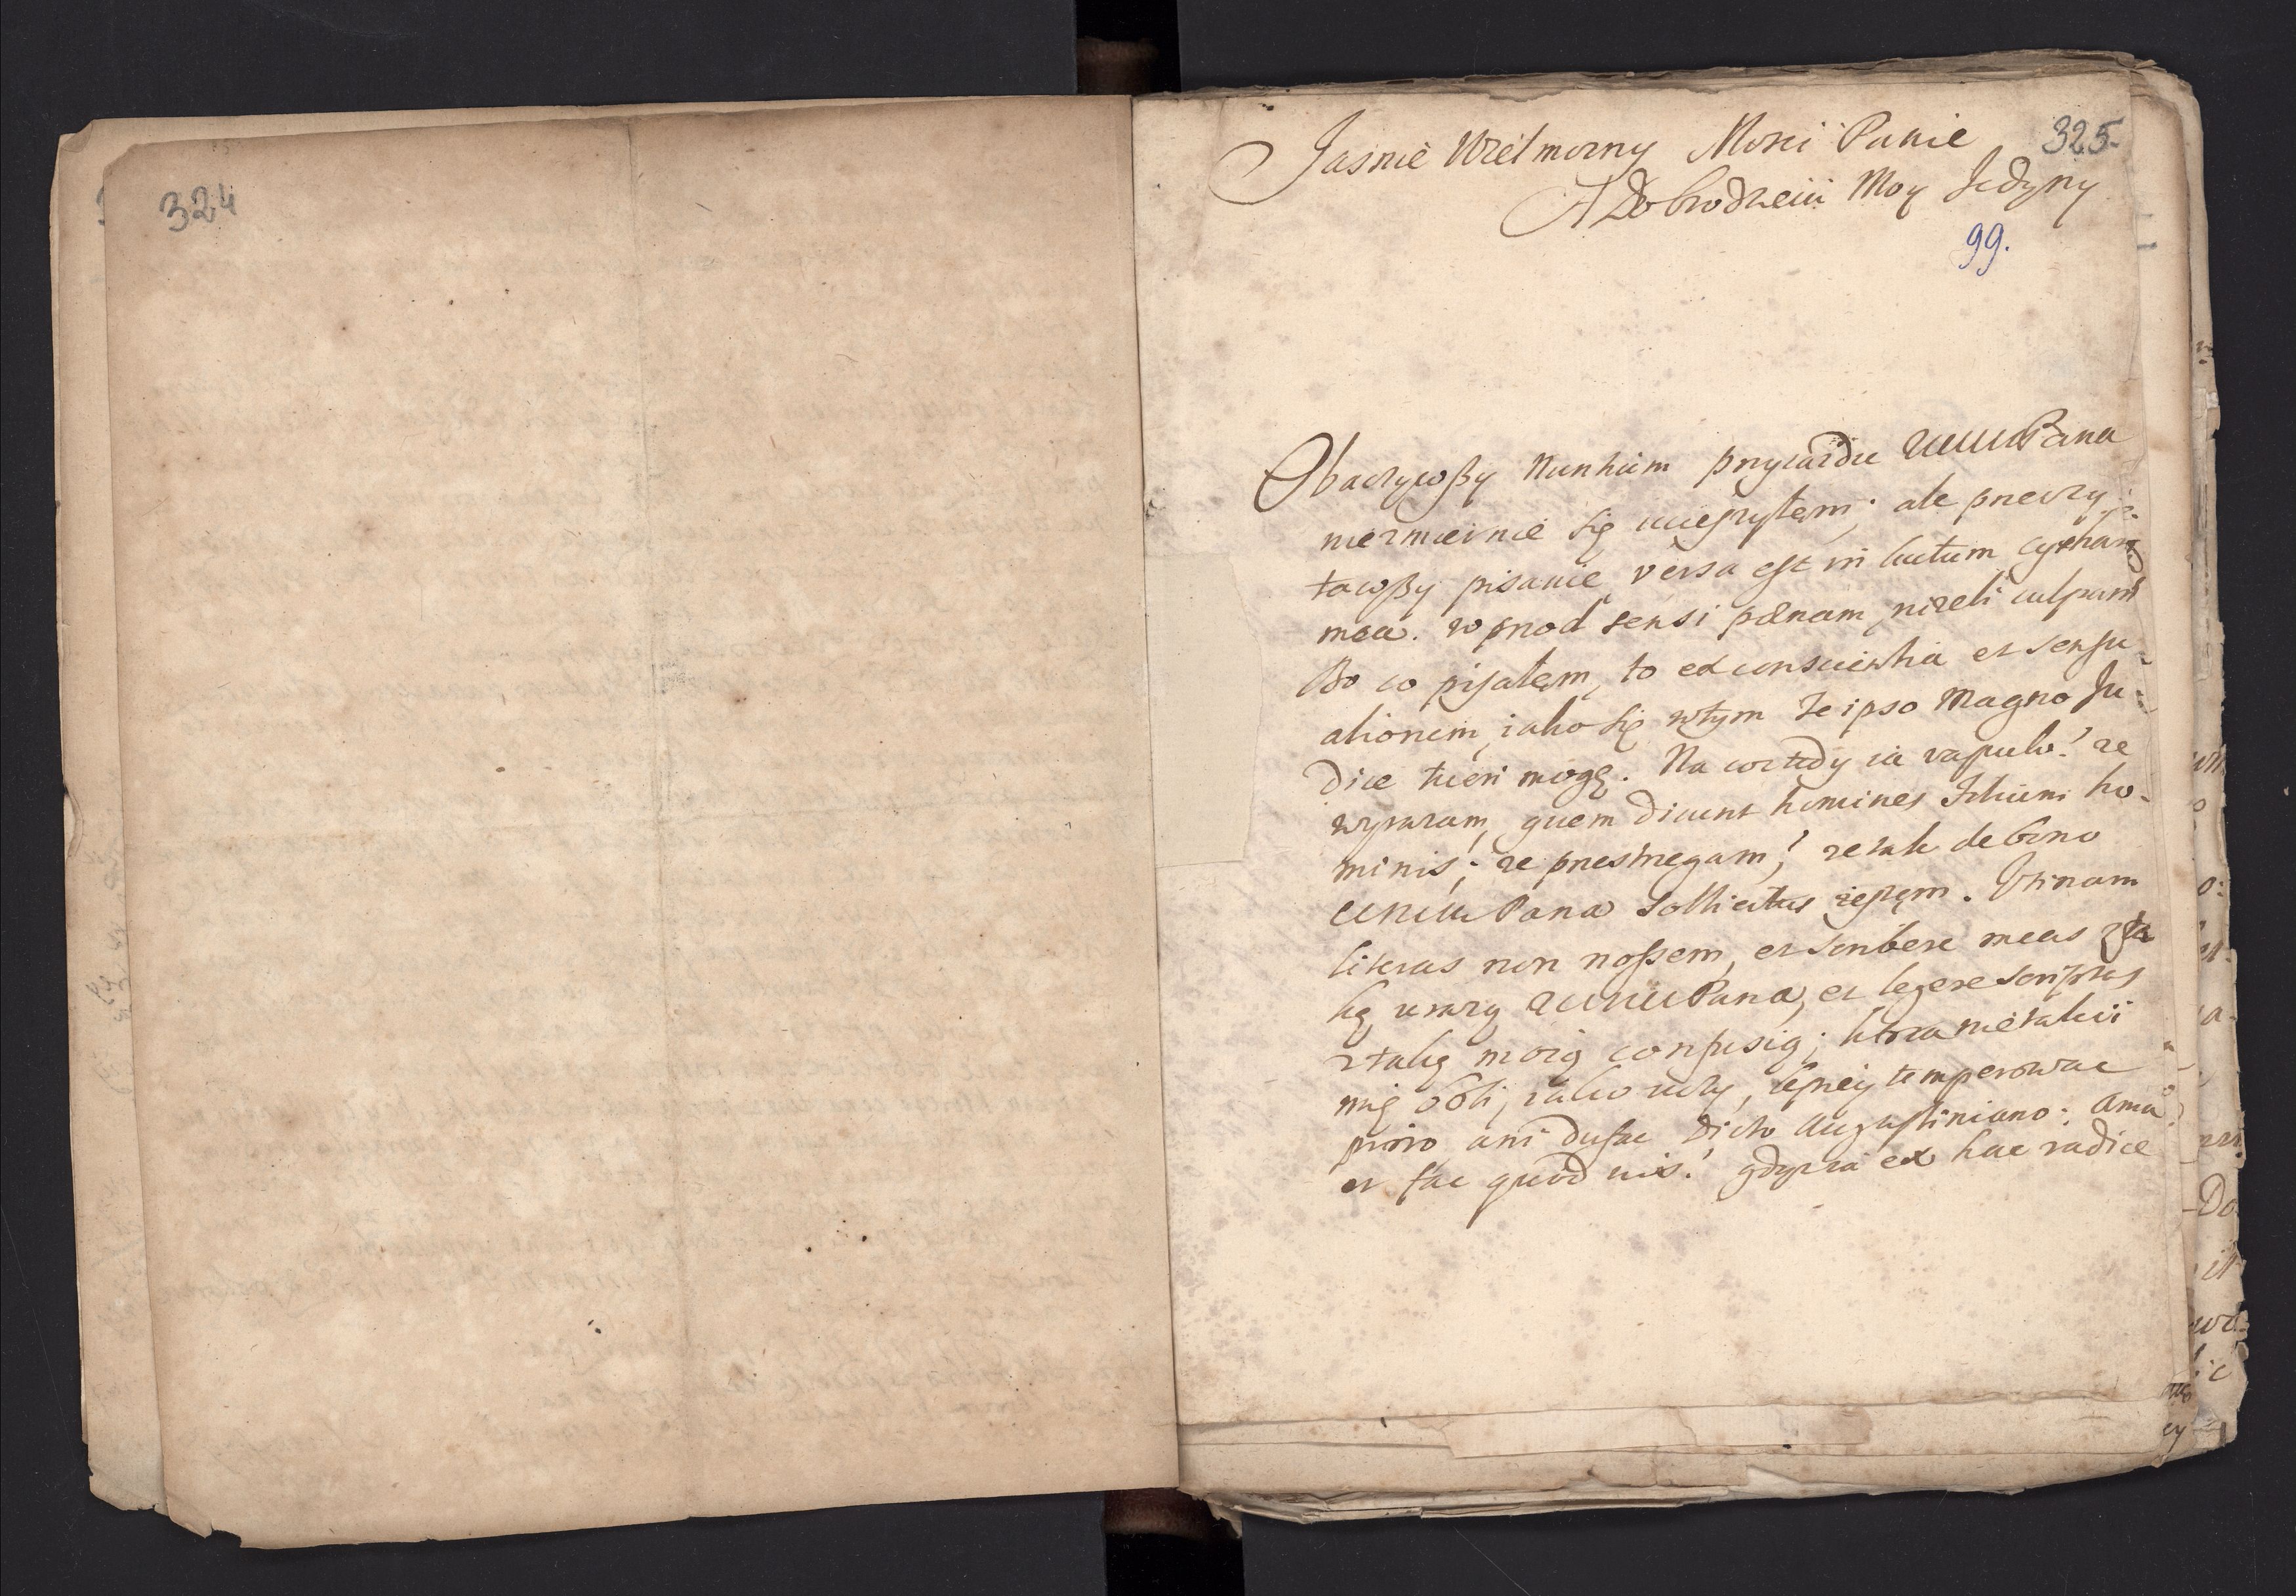 324
325
Jasnie Wielmozny Mosci Panie
A Dobrodzieiu Moy Jedyny
99.
Obaczywszy Nunkium przyiazdu Pana
niezmiernie się ucieszyłem; ale przeczy-
tawszy pisanie, versa est in luctum cythara
mea. wprzod sensi pænam, nizeli culpam
Bo co pisałem, to ex conscientia et sensu
ationem, iako się wtym Te ipso Magno Ju-
dice tueri mogę. Na coz tedy ia vapulo! ze
wyrazam, quem dicunt homines Filium ho-
minis; ze przestrzegam! ze tak de bono
Pana sollicitus iestem. Utinam
literas non nossem, et scribere meas z ta
ką urazą Pana, et legere scriptas
z taką moią confusią; ktora nie tak ii
mię boli, iako uczy, lepiey temperować
pioro, ani dufac dicto Augustiniano: Ama
et fac quod vis! gdysz ia ex hac radice